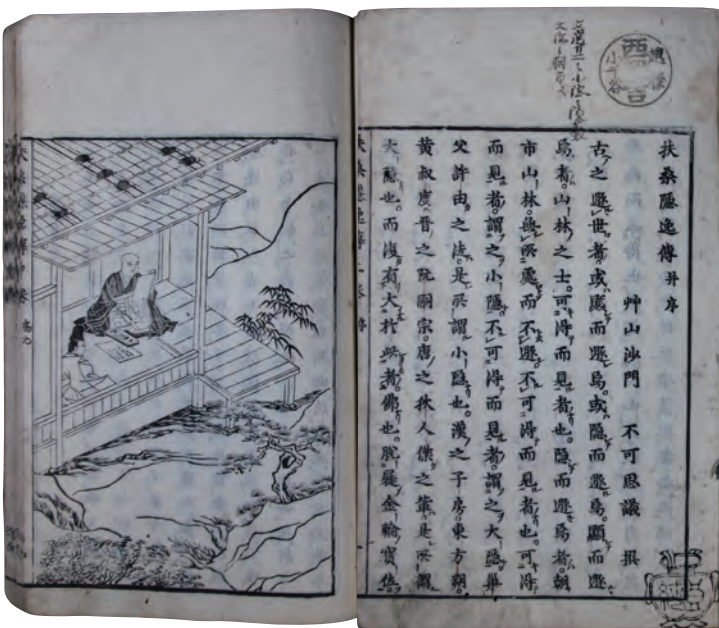 扶桑隱逸傳 并序
艸山沙門 不可思議 撰
古之遯世者。或顯而遯焉。或隱而遯焉。顯而遯
焉者。山林之士。可得而見者也。隱而遯焉者。朝
市山林。無所處而不遯。不可得而見者也。可得
而見者。謂之小隱。不可得而見者。謂之大隱。巢
父許由之徒。是所謂小隱也。漢之子房。東方朔。
黃叔度。晉之阮嗣宗。唐之狄人傑之輩。是所謂
大隱也。而復有大於此者。佛也。脫屣金輪寶位。